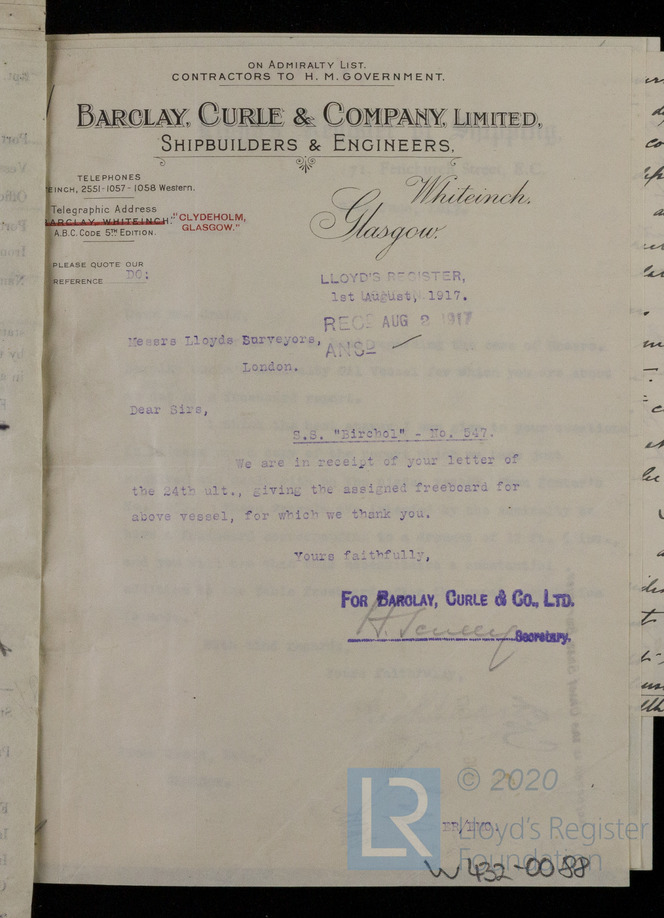 ON ADMIRALTY LIST.
CONTRACTORS TO H. M. GOVERNMENT.
BARCLAY, CURLE & COMPANY, LIMITED,
SHIPBUILDERS & ENGINEERS.
TELEPHONES
EINCH, 2551-1057-1058 Western.
Whiteinch.
Glasgow.
Telegraphic Address
BARCLAY, WHITEINCH. "CLYDEHOLM,
GLASGOW."
A.B.C. CODE 5TH EDITION.
PLEASE QUOTE OUR
REFERENCE DO:
LLOYD'S REGISTER,
1st August, 1917.
REC AUG 2 1917
Messrs Lloyds Surveyors,
ANSD
London.
Dear Sirs,
S.S. "Birchol" - No. 547.
We are in receipt of your letter of
the 24th ult., giving the assigned freeboard for
above vessel, for which we thank you.
Yours faithfully,
FOR BARCLAY, CURLE & CO., LTD.
Secretary.
LR
© 2020
Lloyd's Register
Foundation
W432-0088